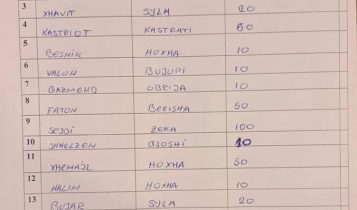 3 XHAVIT SYLA 20
4 KASTRIOT KASTRATI 50
5 BESNIK HOXHA 10
6 VALON BUJUPI 10
7 GAZMEND OBRIJA 10
8 FATON BERISHA 50
9 SEJDI ZEKA 100
10 GJOSHI 10
11 XHEMAJL HOXHA 50
12 HALIM HOXHA 10
13 BUJAR SYLA 20